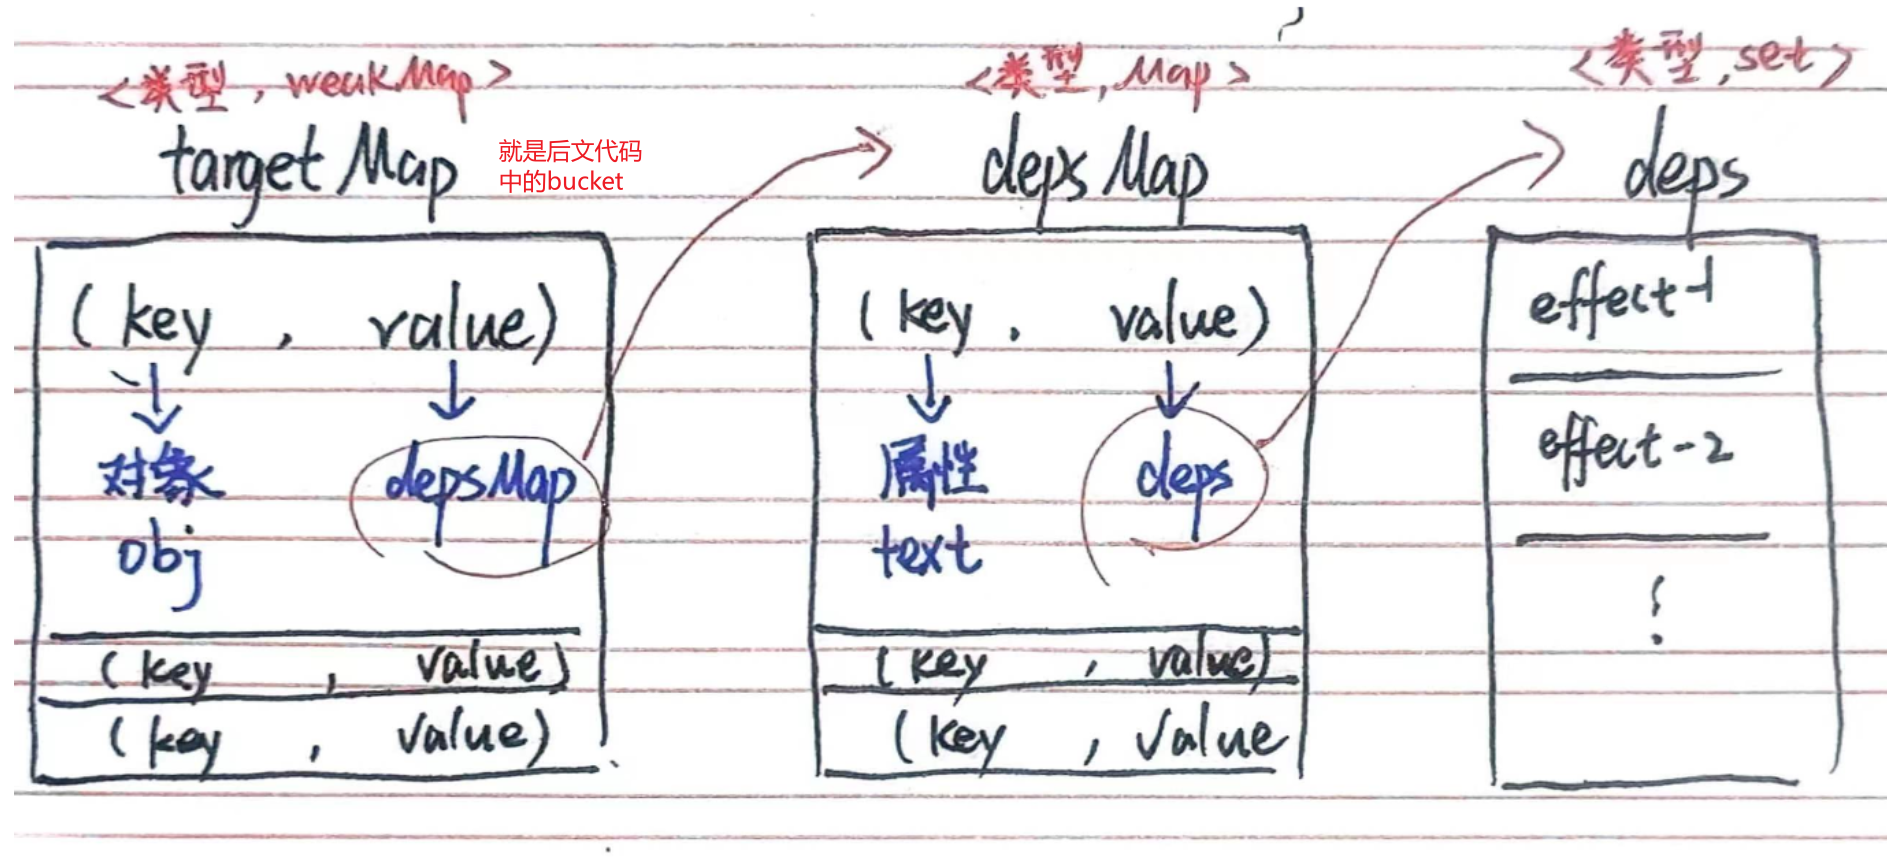 <类型, weakMap>
targetMap
就是后文代码
中的bucket
(key , value)
对象 depsMap
obj
(key , value)
(key , value)
<类型, Map>
depsMap
(key , value)
属性 deps
text
(key , value)
(key , value
<类型, set>
deps
effect-1
effect-2
⋮